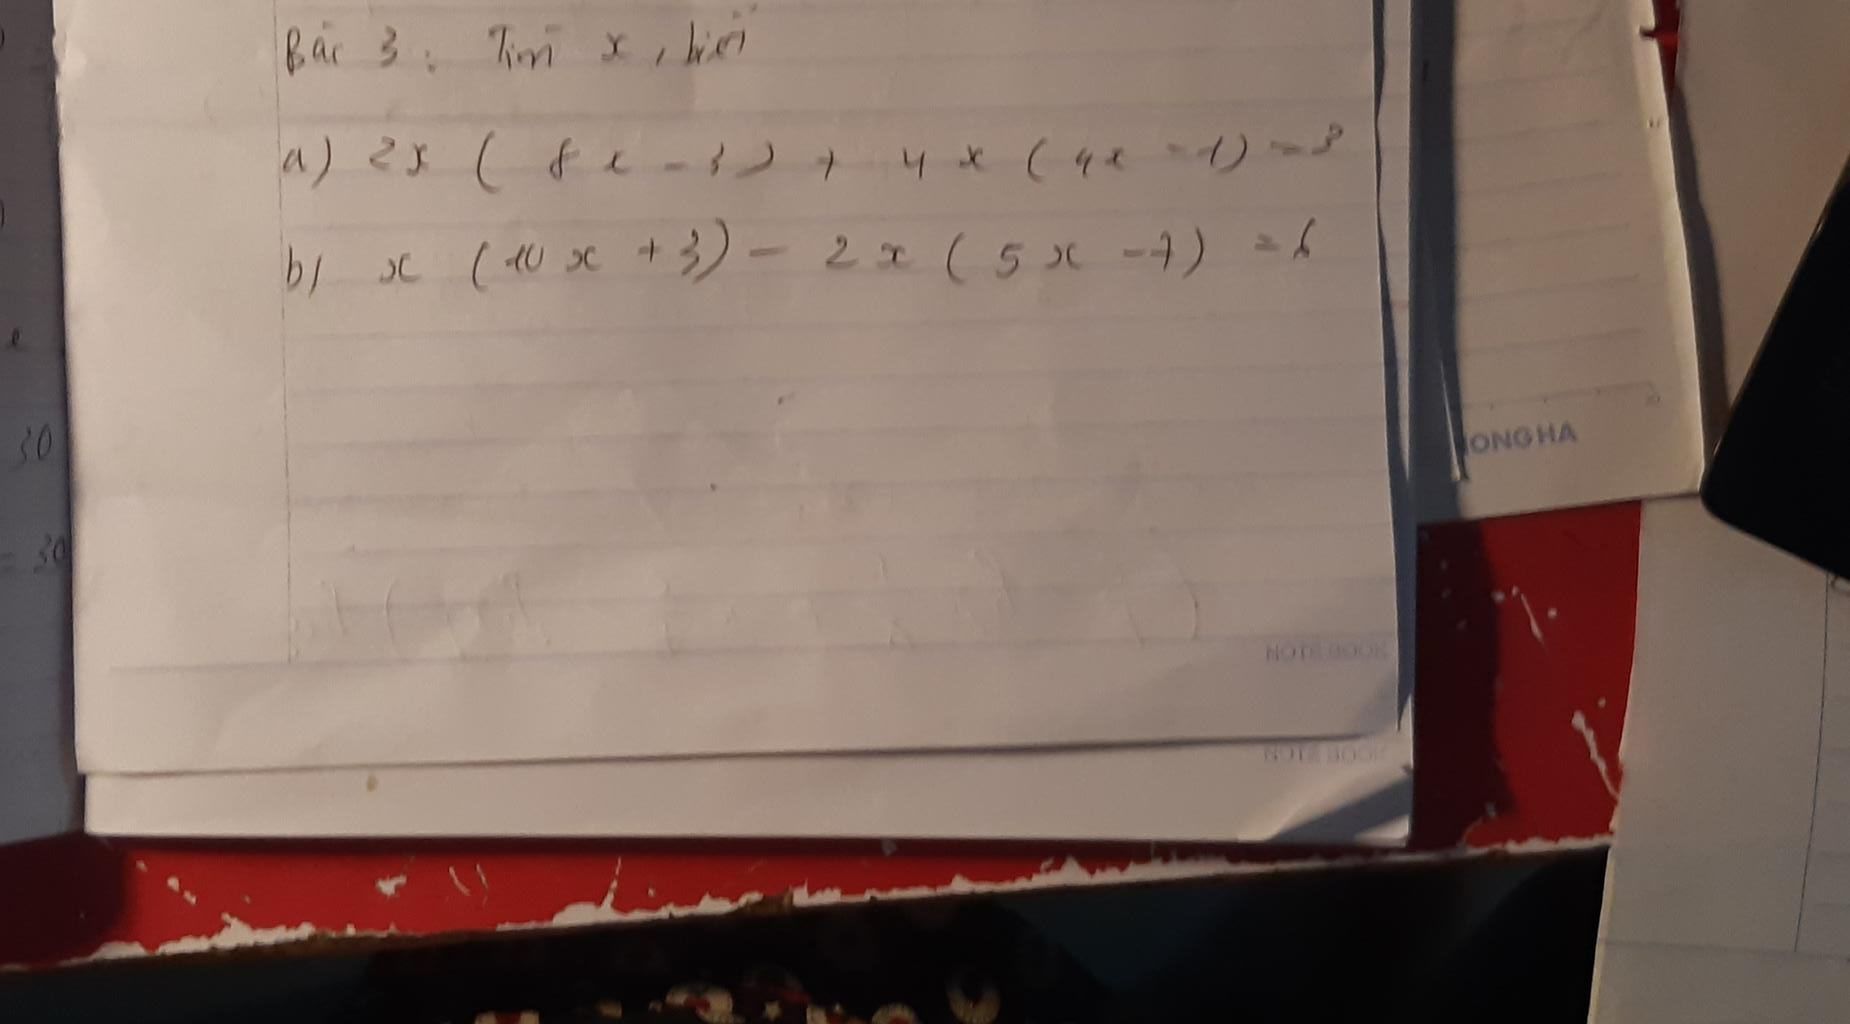 Bài 3 : Tìm x , biết
a) 2x ( 8x - 3 ) + 4x ( 4x - 1 ) = 3
b) x ( 10x + 3 ) - 2x ( 5x - 7 ) = 6
30
= 30
ONG HA
NOTEBOOK
NOTEBOOK